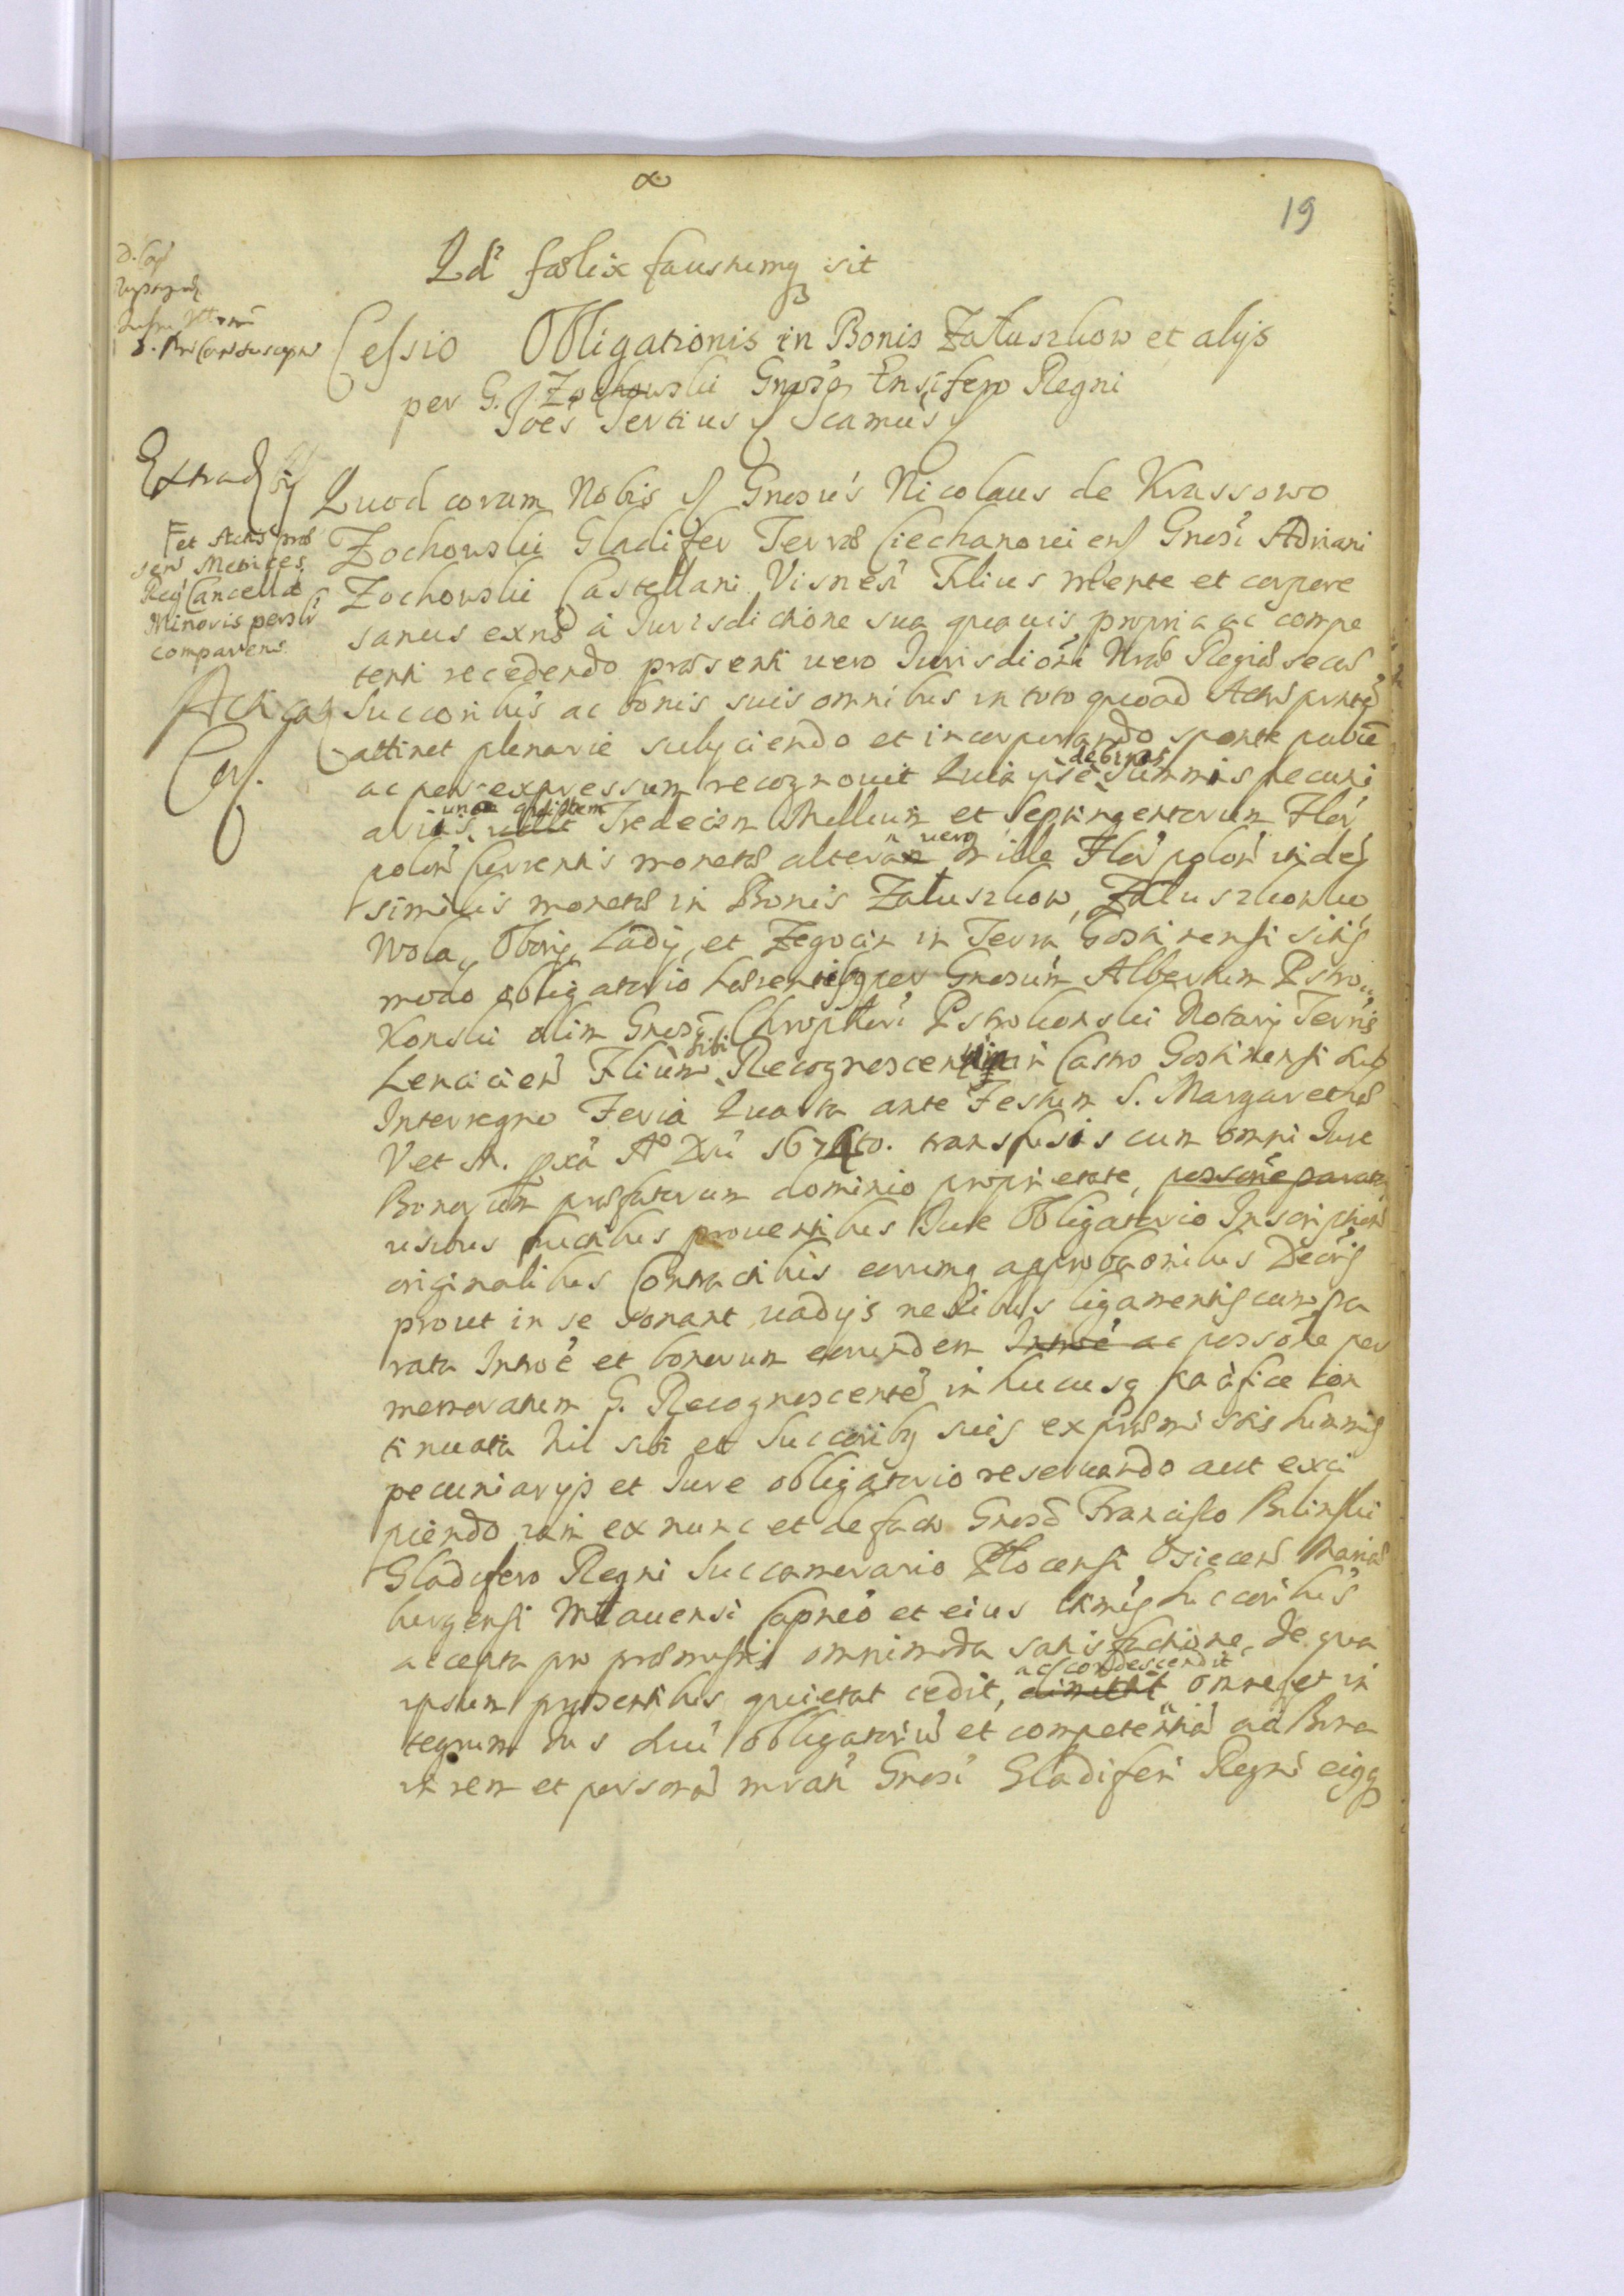 19
Qd fœlix faustumq sit
Cessio Obligationis in Bonis Załuszkow et alijs
per G. Zochowski Gnoso Ensifero Regni
Joes Tertius Scamus
Extrad
Quod coram Nobis Gnosus Nicolaus de Krassowo
Fet Actis præ
sen Metrices
Reg Cancellæ
Minoris persolr
comparens
Zochowski Gladifer Terræ Ciechanoviens Gnosi Adriani
Zochowski Castellani Visnen Filius mente et corpore
sanus exns à Jurisdictione sua quavis propria ac compe
tenti recedendo præsenti uero Jurisdioni Nræ Regiæ secus
Succoribus ac bonis suis omnibus in toto quoad Actus pntis
attinet plenarie subijciendo et incorporando sponte publice
ac per expressum recognouit Quia ipse debinas Summis pecuni
arijs una quidem Tredecim Millium et Septingentorum Flor
polon currentis monetæ altera uero mille Flor polon itidem
similis monetæ in Bonis Załuszkow, Załuszkowska
Wola, Obory, Lady, et Zegocin in Terra Gostinensi sitis
modo obligatorio hærentibus per Gnosum Albertum Pstro„
Konski olim Gnosi Chrophori Pstrokonski Notarij Terris
Lencicien Filium sibi Recognoscenti in Castro Gostinensi sub
Interregno Feria Quarta ante Festum S. Margarethæ
V et M. pxa Ao Dni 1674to. transfusis cum omni Jure
Bonorum præfatorum dominio proprietate, possone parata
usibus fructibus prouentibus Jure Obligatorio Inscription
originalibus Contractibus eorumq approbaonibus Decris
prout in se sonant uadijs nexibus ligamentis cumpa
rata Intrœ et bonorum eorundem Intrœ ac possone per
memoratum G. Recognoscente in hucusq pacifice con
tinuata nil sibi et Succoribq suis ex præmissis summis
pecuniarijs et Jure obligatorio reseruando aut exci
piendo iam ex nunc et de facto Gnoso Francisco Bilinski
Gladifero Regni Succamerario Plocensi Osiecen Mariæ
burgensi Mlauensi Capneo et eius ltimis Succoribus
accepta pro præmissis omnimoda satisfactione, de qua
ipsum præsentibus quietat cedit, dimittit ac condescendit omne et in
tegrum Jus suu obligatoriu et competentia ad Bona
in rem et persona mrati Gnosi Gladiferi Regni eiqq